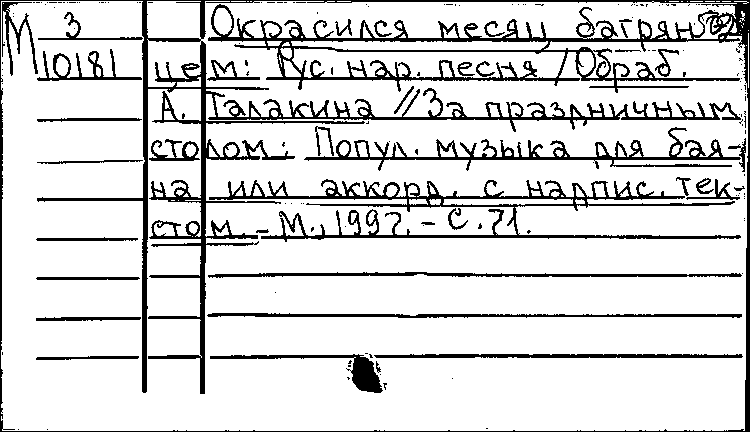 М 3 Окрасился месяц багрян-
10181 цем: Рус. нар. песня / Обраб.
А. Талакина // За праздничным
столом: Попул. музыка для бая-
на или аккорд. с надпис. тек-
стом. - М., 1997. - С. 71.